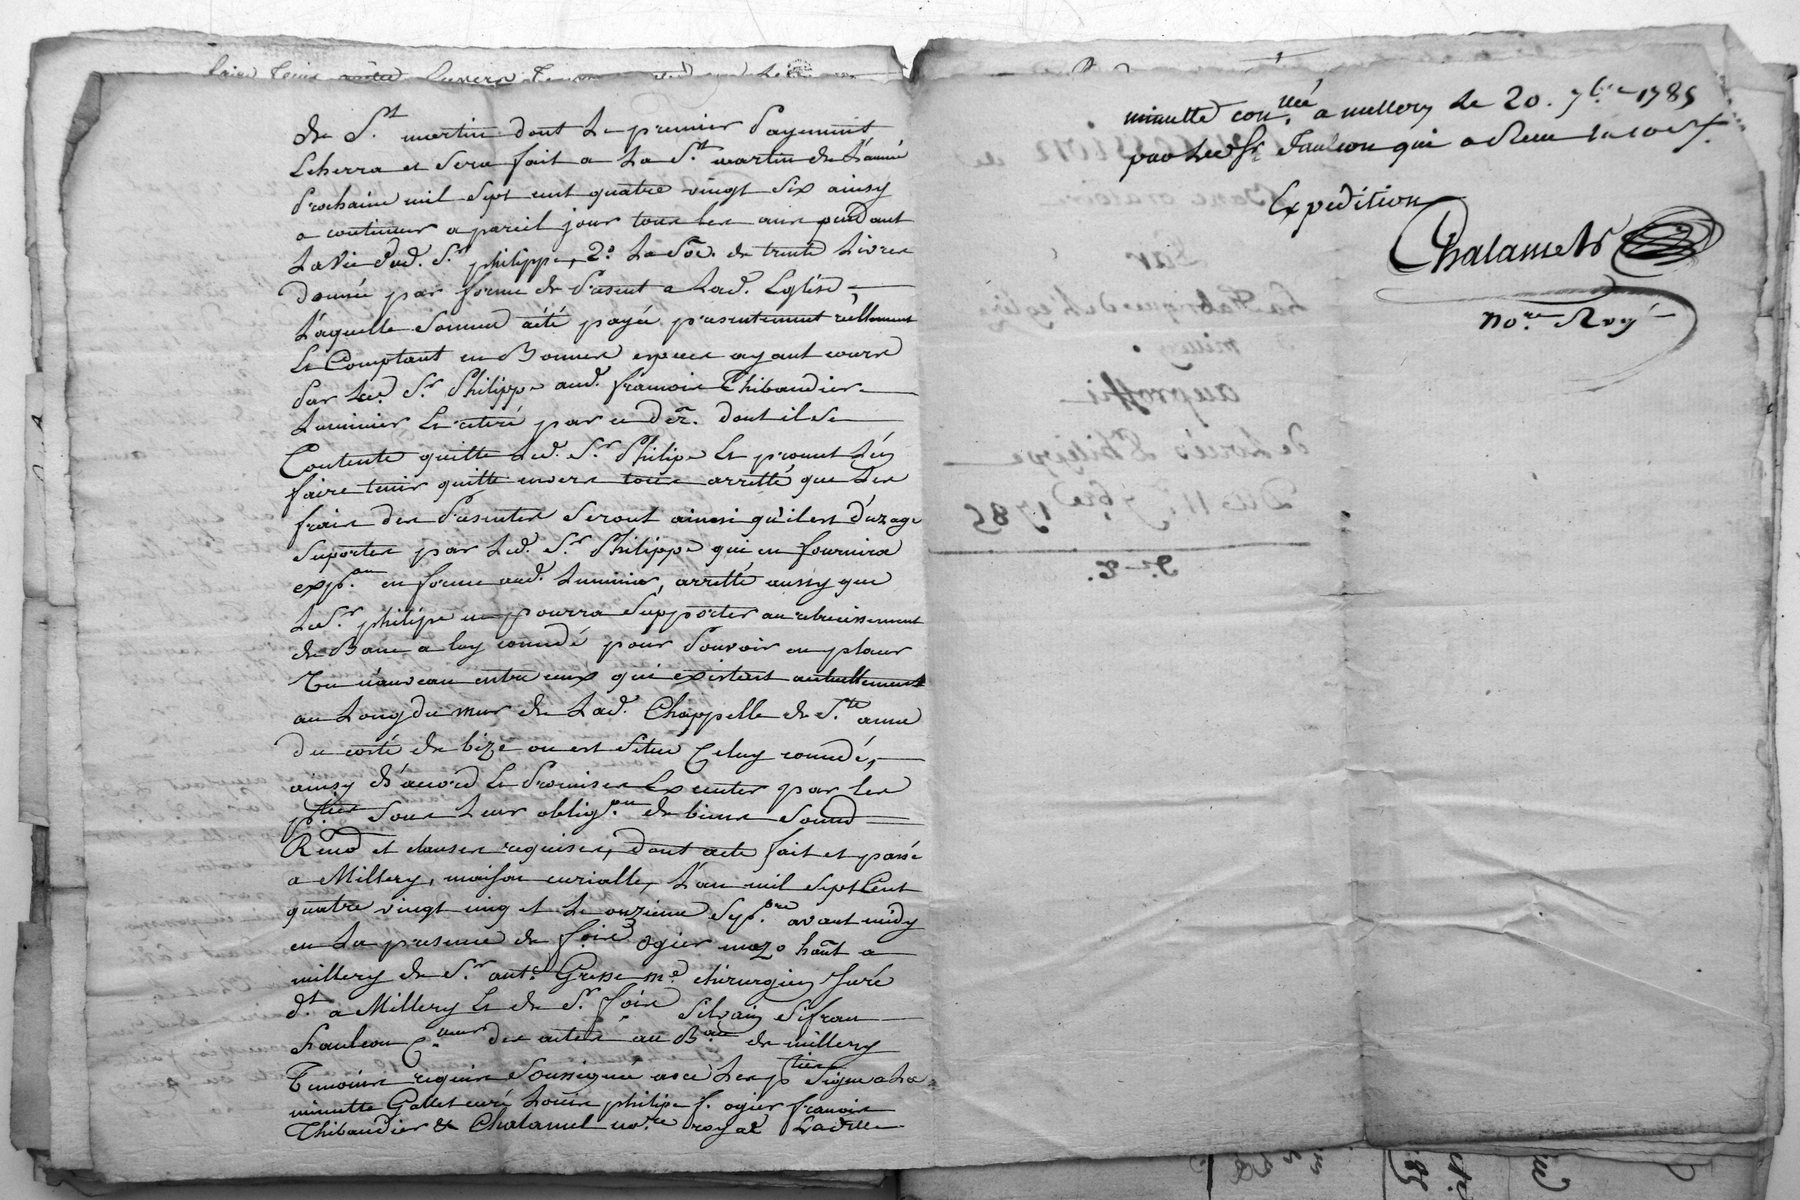 de S.t martin dont Le premier payement
Echerra et sera fait a La S.t martin de L'année
prochaine mil sept cent quatre vingt six ainsy
a continuer a pareil jour tous les ans pendant
La vie dud. S.r philippe, 2.o La So.e de trente Livres
donnée par forme de present a Lad. Eglise
Laquelle somme a été payée presentement réellement
Et Comptant en Bonnes especes ayant cours
par Led. S.r Philippe aud. françois Thibaudier
Luminier Et retiré par ce der. dont il se
Contente quitte Led. S.r Philipe Et promet L'en
faire tenir quitte envers tous arretté que Les
frais des presentes seront ainsi qu'il est d'uzage
suportés par Led. S.r Philippe qui en fournira
exp.on en forme aud. Luminier, arretté aussy que
Led. S.r philipe ne pourra s'opporter au retrecissement
du Banc a luy concedé pour pouvoir en placer
un nauveau entre ceux qui existent actuellement
au Long du mur de Lad. Chappelle de S.te anne
du costé de bize ou est situé Celuy concedé,
ainsy d'acord Et promis Executer par les
pties sous Leur oblig.on de biens soumd
Renod et clauses requises, dont acte fait et passé
a Millery, maison curialle, L'an mil sept Cent
quatre vingt cinq et Le onzieme Sep.bre avant midy
en La presence de f.ois ogier hant a
millery de S.r ant.e Grisse m.e chirurgien Juré
d.t a Millery Et de S.r foix Silvain Sifran
fauleon C. des actes au B.au de millery
Temoins requis soussignés avec Les pties signé a La
minutte Gallet curé Loüis philipe f. ogier françois
Thibaudier & Chalamel no.re royal
minutte con.llée a millery Le 20. 7.bre 1785
par Led. Sr fauleon qui a Reçu
Expedition
Chalamel
no.re Roy
Concession de
Banc
Par
La fabrique de L'eglise
de
millery
au proffit
de Loüis Philippe
Du 11.e 7bre 1785